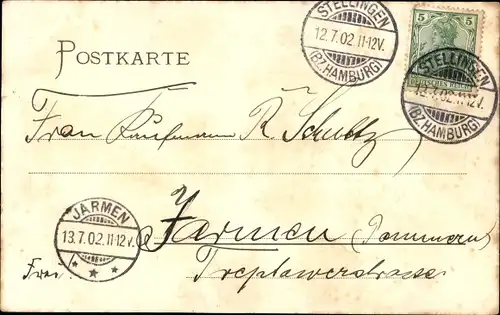 STELLINGEN
12.7.02.11-12V.
(BZ.HAMBURG)
5 5
STELLINGEN
13.7.02.11-12V.
(BZ.HAMBURG)
POSTKARTE
Frau Kaufmann R. Schultz
JARMEN
13.7.02.11-12V.
* * *
Jarmen (Pommern)
Treptowerstrasse
Frei.